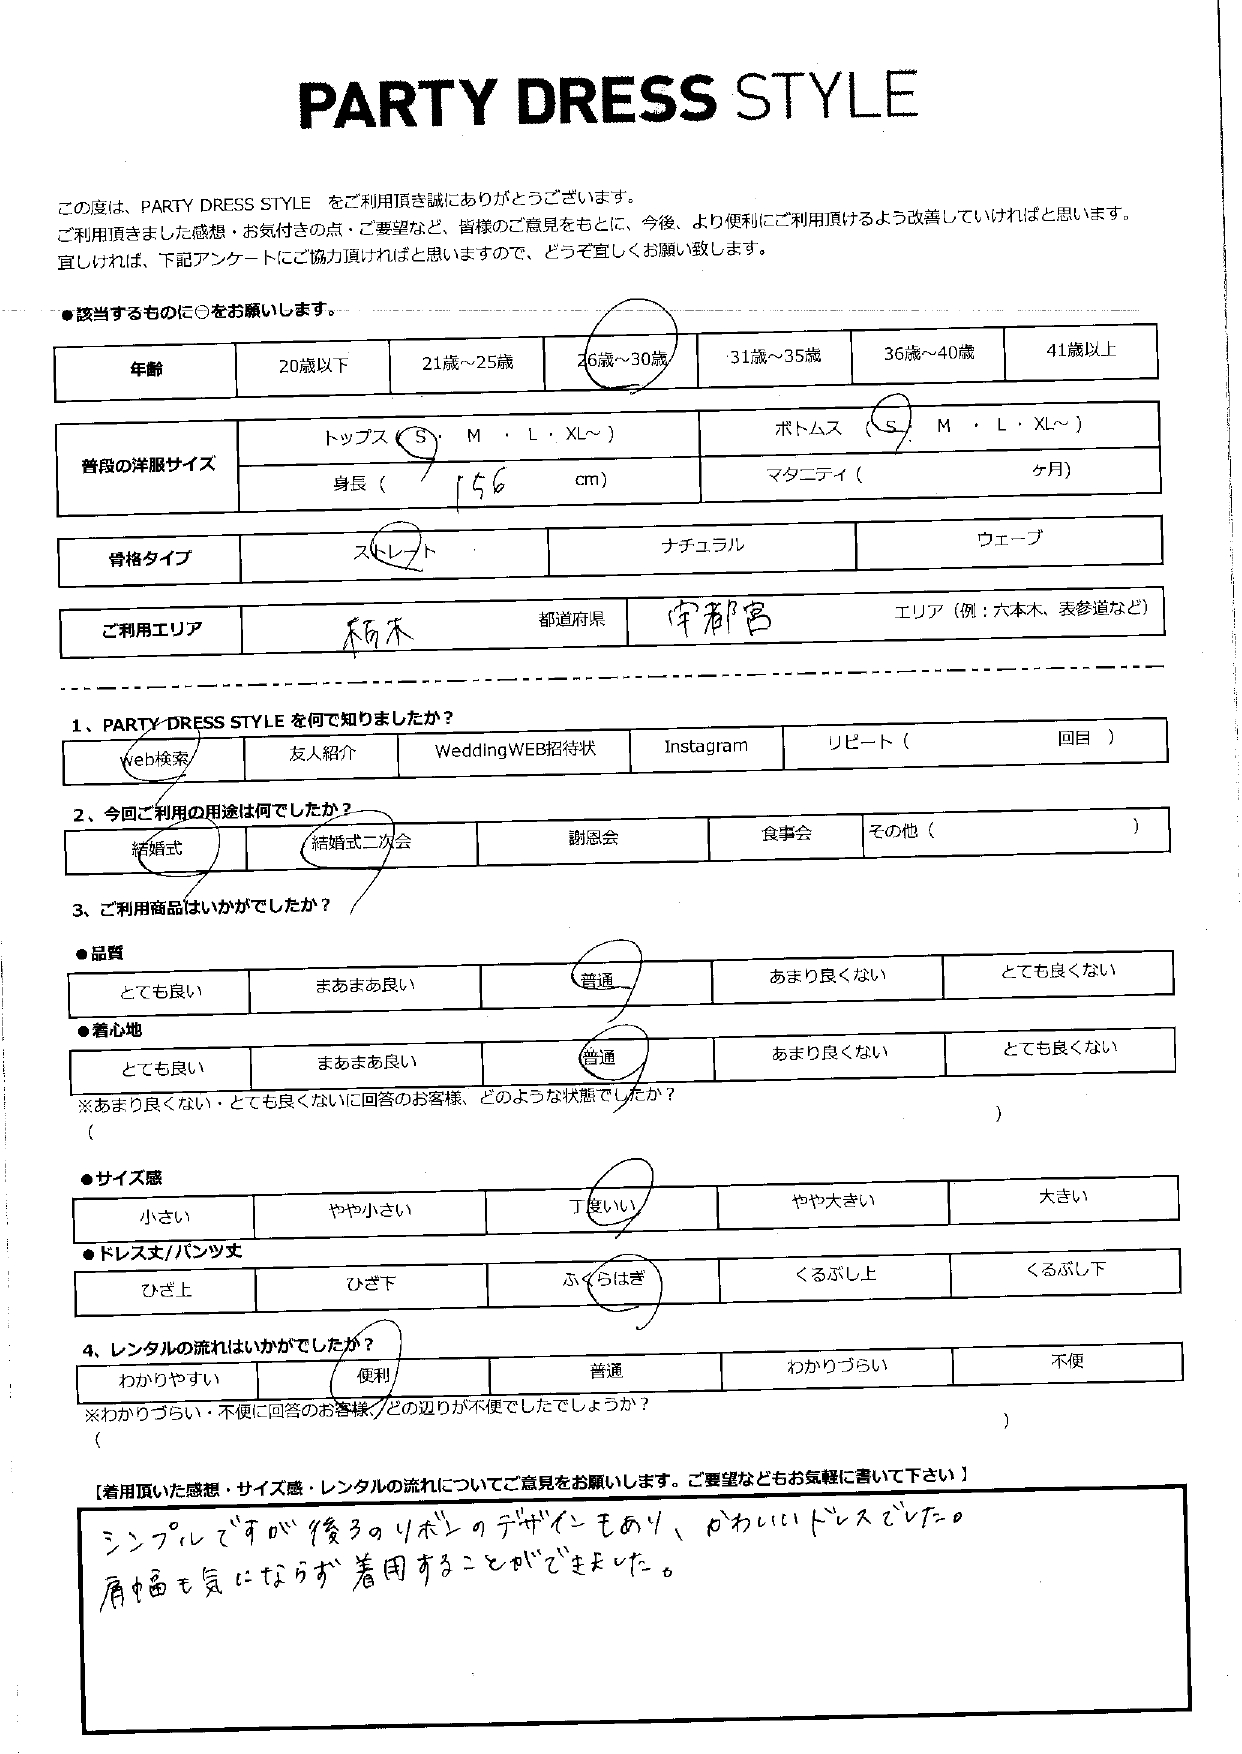 PARTY DRESS STYLE
この度は、PARTY DRESS STYLE をご利用頂き誠にありがとうございます。
ご利用頂きました感想・お気付きの点・ご要望など、皆様のご意見をもとに、今後、より便利にご利用頂けるよう改善していければと思います。
宜しければ、下記アンケートにご協力頂ければと思いますので、どうぞ宜しくお願い致します。
●該当するものに○をお願いします。
年齢 20歳以下 21歳～25歳 26歳～30歳 31歳～35歳 36歳～40歳 41歳以上
普段の洋服サイズ
トップス (S・ M ・ L ・ XL～ ) ボトムス (S・ M ・ L ・ XL～ )
身長 ( 156 cm) マタニティ ( ケ月)
骨格タイプ ストレート ナチュラル ウェーブ
ご利用エリア 栃木 都道府県 宇都宮 エリア (例：六本木、表参道など)
1、PARTY DRESS STYLE を何で知りましたか？
Web検索 友人紹介 WeddingWEB招待状 Instagram リピート ( 回目 )
2、今回ご利用の用途は何でしたか？
結婚式 結婚式二次会 謝恩会 食事会 その他 ( )
3、ご利用商品はいかがでしたか？
●品質
とても良い まあまあ良い 普通 あまり良くない とても良くない
●着心地
とても良い まあまあ良い 普通 あまり良くない とても良くない
※あまり良くない・とても良くないに回答のお客様、どのような状態でしたか？
( )
●サイズ感
小さい やや小さい 丁度いい やや大きい 大きい
●ドレス丈/パンツ丈
ひざ上 ひざ下 ふくらはぎ くるぶし上 くるぶし下
4、レンタルの流れはいかがでしたか？
わかりやすい 便利 普通 わかりづらい 不便
※わかりづらい・不便に回答のお客様、どの辺りが不便でしたでしょうか？
( )
【着用頂いた感想・サイズ感・レンタルの流れについてご意見をお願いします。ご要望などもお気軽に書いて下さい 】
シンプルですが後ろのリボンのデザインもあり、かわいいドレスでした。
肩幅も気にならず着用することができました。